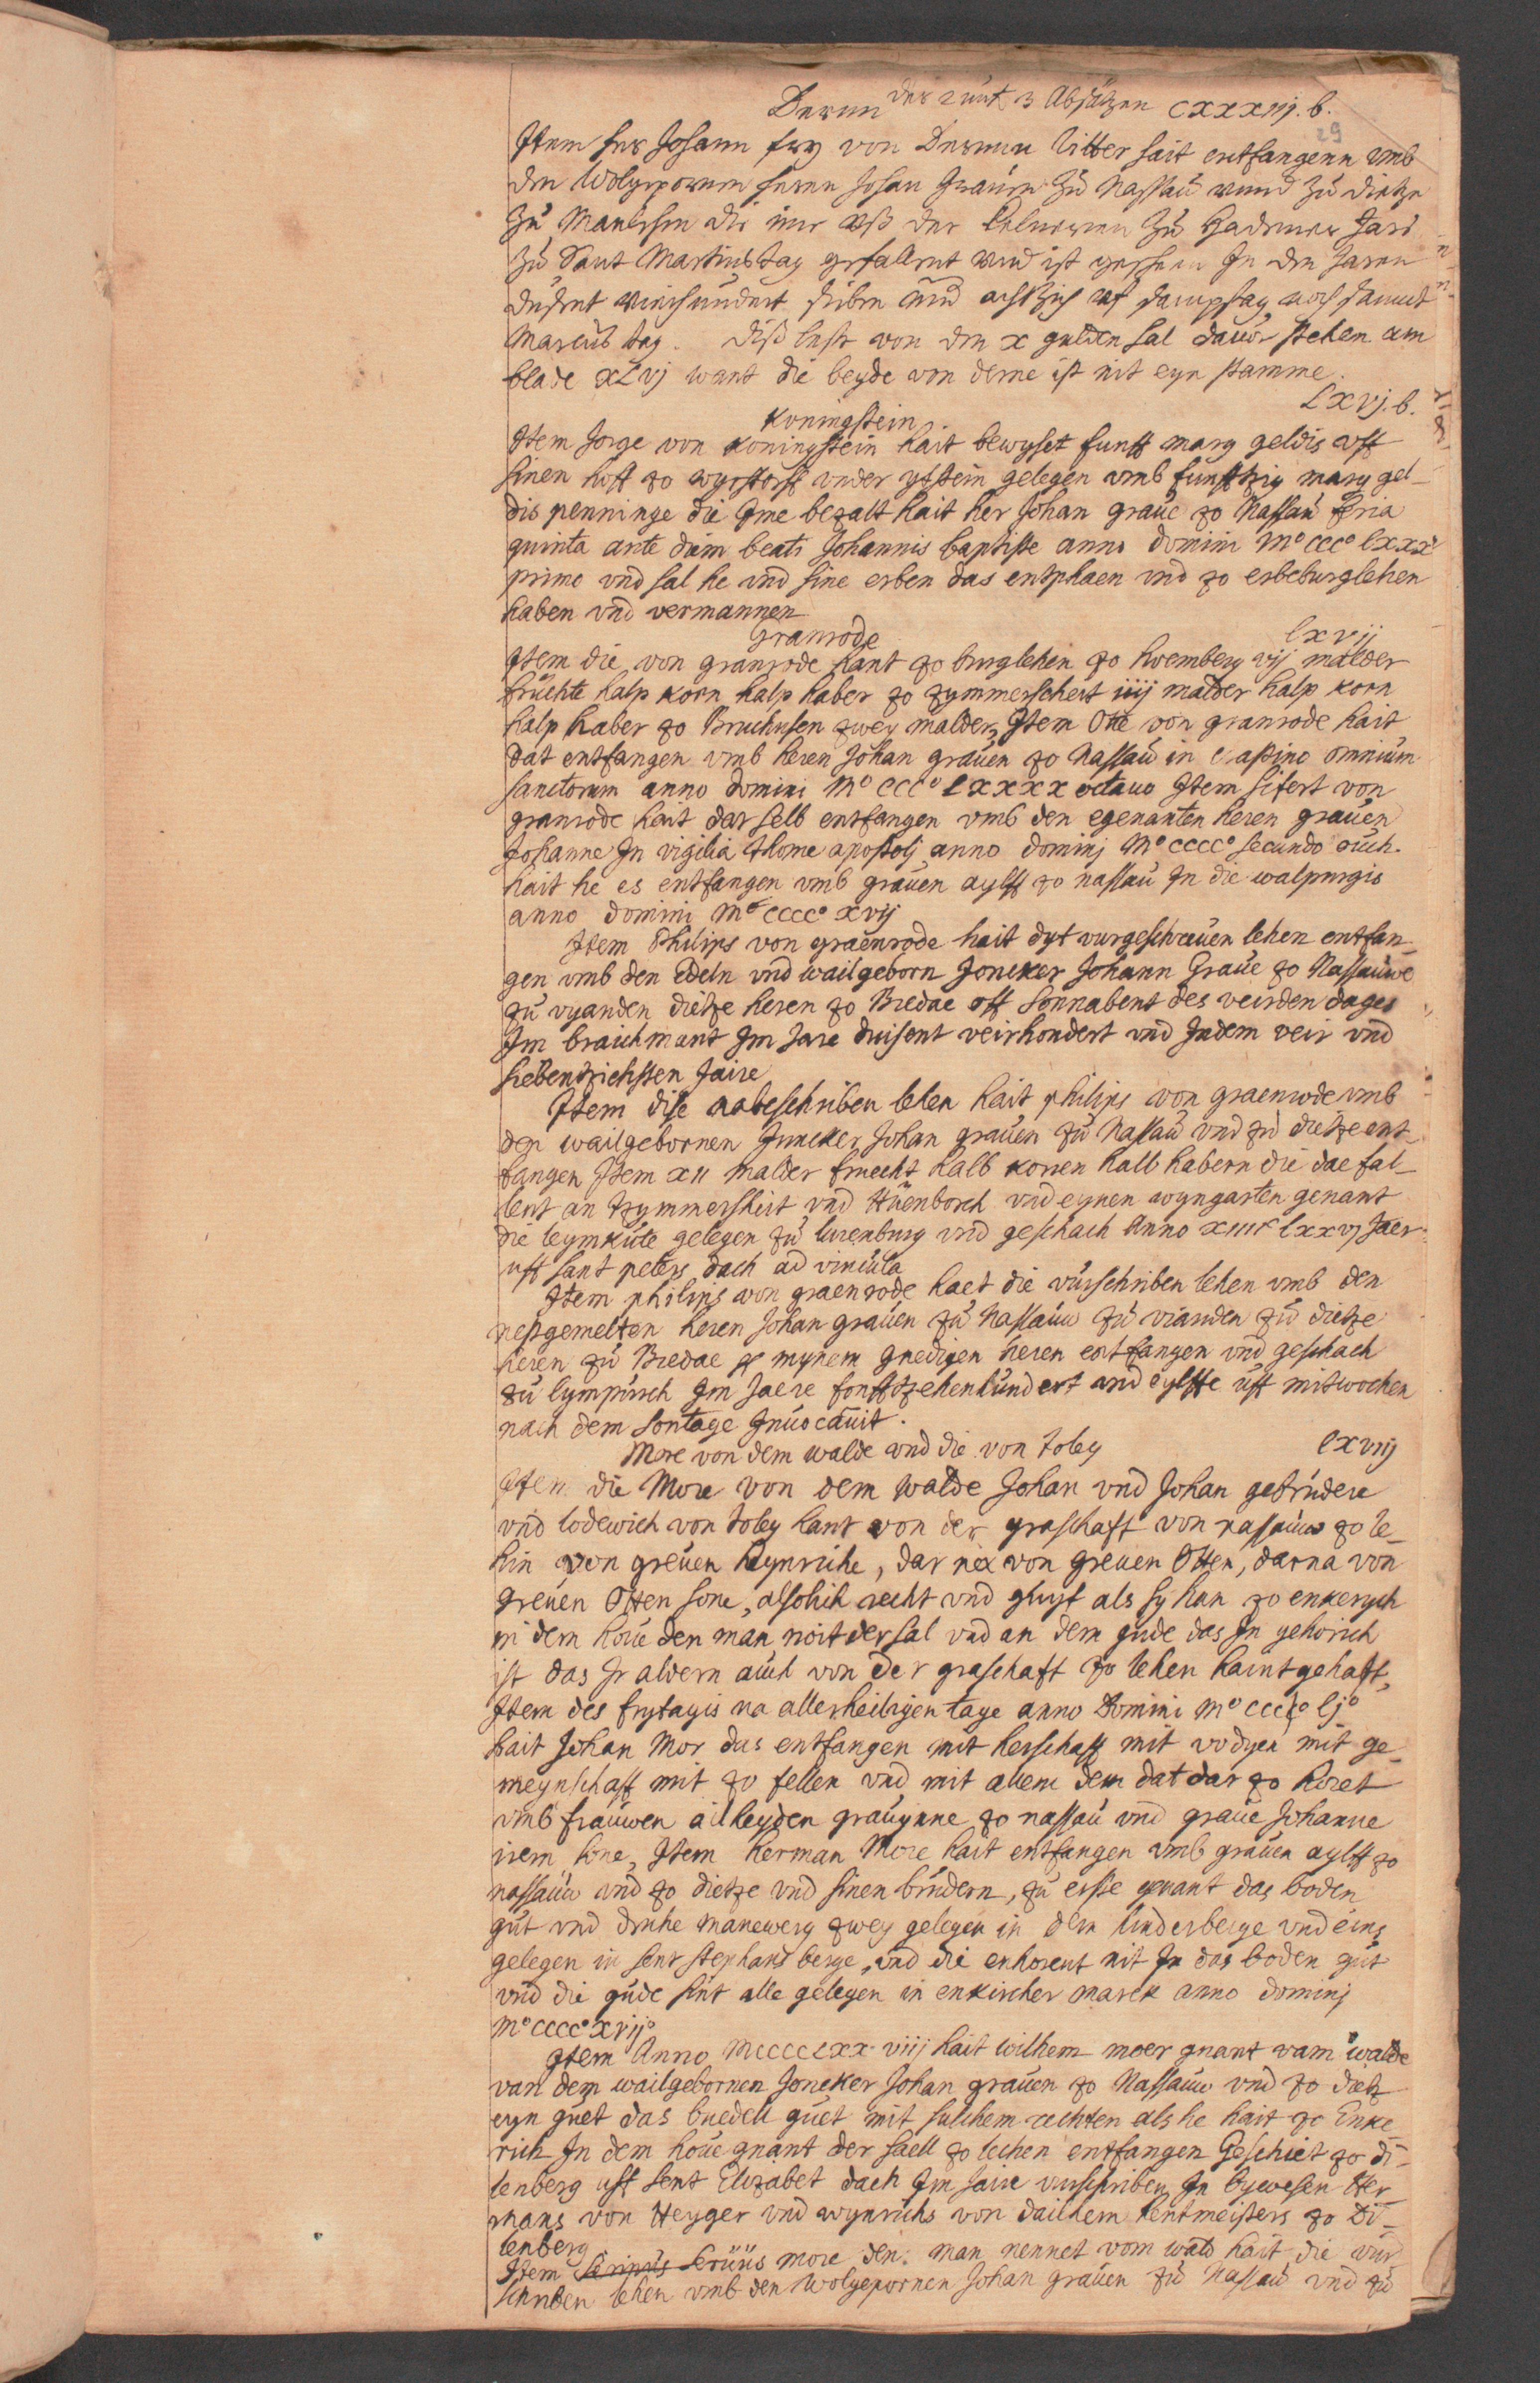 Dernn der zunt 3 Absätzen CXXXIIj. b.
29
Item her Johann fry von Dernnn Ritter hait entfangenn vmb
den Wolgepornnen hernn Johan Grauen zu Nassau vnnd zu Dietze
zu Manlehen die mir vß der zu Hademer Jars
zu Sant Martinstag gefallent vnd ist gescheen In den Jaren
dusent vierhundert sieben vnd achtzich vf samstag noch sannct
Marcus tag. diß lehn von den x gulden sal dauor stehen am
blade XLvj want die beyde von deme ist nit eyn stamme.
Koningstein LXVj. b.
Item Jorge von Koningstein hait bewyset funff marg geldis vff
sinen hoff zo wyrstorff vnder ytstein gelegen vmb funfftzig marg gel-
dis penninge die Ime bezalt hait her Johan graue zo Nassau feria
quinta ante diem beati Johannis baptiste anno domini Mo CCCo lxxxo
primo vnd sal he vnd sine erben das entphaen vnd zo erbeburglehen
haben vnd vermannen
Granrode lxvij
Item die von granrode hant zo burglehen zo lwemberg vij malder
fruchte halp korn halp haber zo zymmerscheit iiij malder halp korn
halp haber zo Bruchusen zwey malder, Item Otte von granrode hait
dat entfangen vmb heren Johan grauen zo Nassau in crastino omnium
sanctorum anno domini Mo CCCo LXXXX octauo Item sifert von
granrode hait dar selb entfangen vmb den egenanten heren grauen
Johanne In vigilia Thome apostolj anno dominj Mo CCCCo secundo auch.
hait he es entfangen vmb grauen aylff zo nassau In die walpurgis
anno domini Mo CCCCo xvij
Item Philips von graenrode hait dyt vurgeschreuen lehen entfan-
gen vmb den Edeln vnd wailgeborn Joncker Johann Graue zo Nassauwe
zu vyanden dietze heren zo Bredae vff Sonnabent des veirden dages
Im braichmant Im Jare duisent veirhondert vnd Indem veir vnd
siebentzichsten Jaire
Item dise abeschriben lehen hait philips von graenrode vmb
den wailgebornen Juncker Johan grauen zu Nassau vnd zu dietze ent-
fangen Item xii malder frucht halb korren halb habern die dae fal-
lent an tzymmershirt vnd Huenborch vnd eynen wyngarten genant
die leymkute gelegen zu lurenburg vnd geschach Anno xiiiic lxxvj Jaer
vff sant peters dach ad vincula
Item philips von graenrode haet die vurschriben lehen vmb den
nestgemelten heren Johan grauen zu Nassauw zu vianden zu dietze
heren zu Bredae mynem gnedigen heren entfangen vnd geschach
zu lympurch Im Jaere fonfftzehenhundert vnd eylffte vff mitwochen
nach dem Sontage Inuocauit.
More von dem walde vnd die von Toley lxviij
Item die More von dem walde Johan vnd Johan gebrudere
vnd lodewich von toley hant von der graschaft von nassauwe zo le-
hin von greuen Heynriche, dar na von greuen Otten, darna von
greuen Otten sone, alsolich recht vnd gluyt als sy han zo enkerych
in dem houe den man noit der sal vnd an dem gude das In gehorich
ist das Ir aldern auch von der graschaft zo lehen haint gehatt,
Item des frytagis na allerheiligen tage anno Domini Mo CCCCo ljo
hait Johan Mor das entfangen mit herschaff mit vodyen mit ge-
meynschaff mit zo fellen vnd mit allem dem dat dar zo horet
vmb frauwen ailheyden grauynne zo nassau vnd graue Johanne
irem sone, Item Herman More hait entfangen vmb grauen aylff zo
nassauw vnd zo dietze vnd sinen brudern, zu erste genant das boden
gut vnd druhe manewerg zwey gelegen in dem Linderberge vnd eins
gelegen in sent stephans berge, vnd die enhorent nit In das boden gut
vnd die gude sint alle gelegen in enkircher marck anno dominj
Mo CCCCo xvijo
Item Anno MCCCCLXX viij hait wilhem moer gnant vam walde
van dem wailgebornen Joncker Johan grauen zo Nassauw vnd zo dietz
eyn guet das buedell guet mit sulchem rechten als he hait zo Enke
rich In dem houe gnant der saell zo lechen entfangen Geschiet zo di-
lenberg vff sent Elizabet dach Im Jaire vurschriben In bywesen Her
mans von Heyger vnd wynrichs von dailhem Rentmeisters zo Di-
lenberg.
Item more den man nennet vom wald hait die vur
schriben lehen vmb den Wolgepornen Johan grauen zu Nassau vnd zu